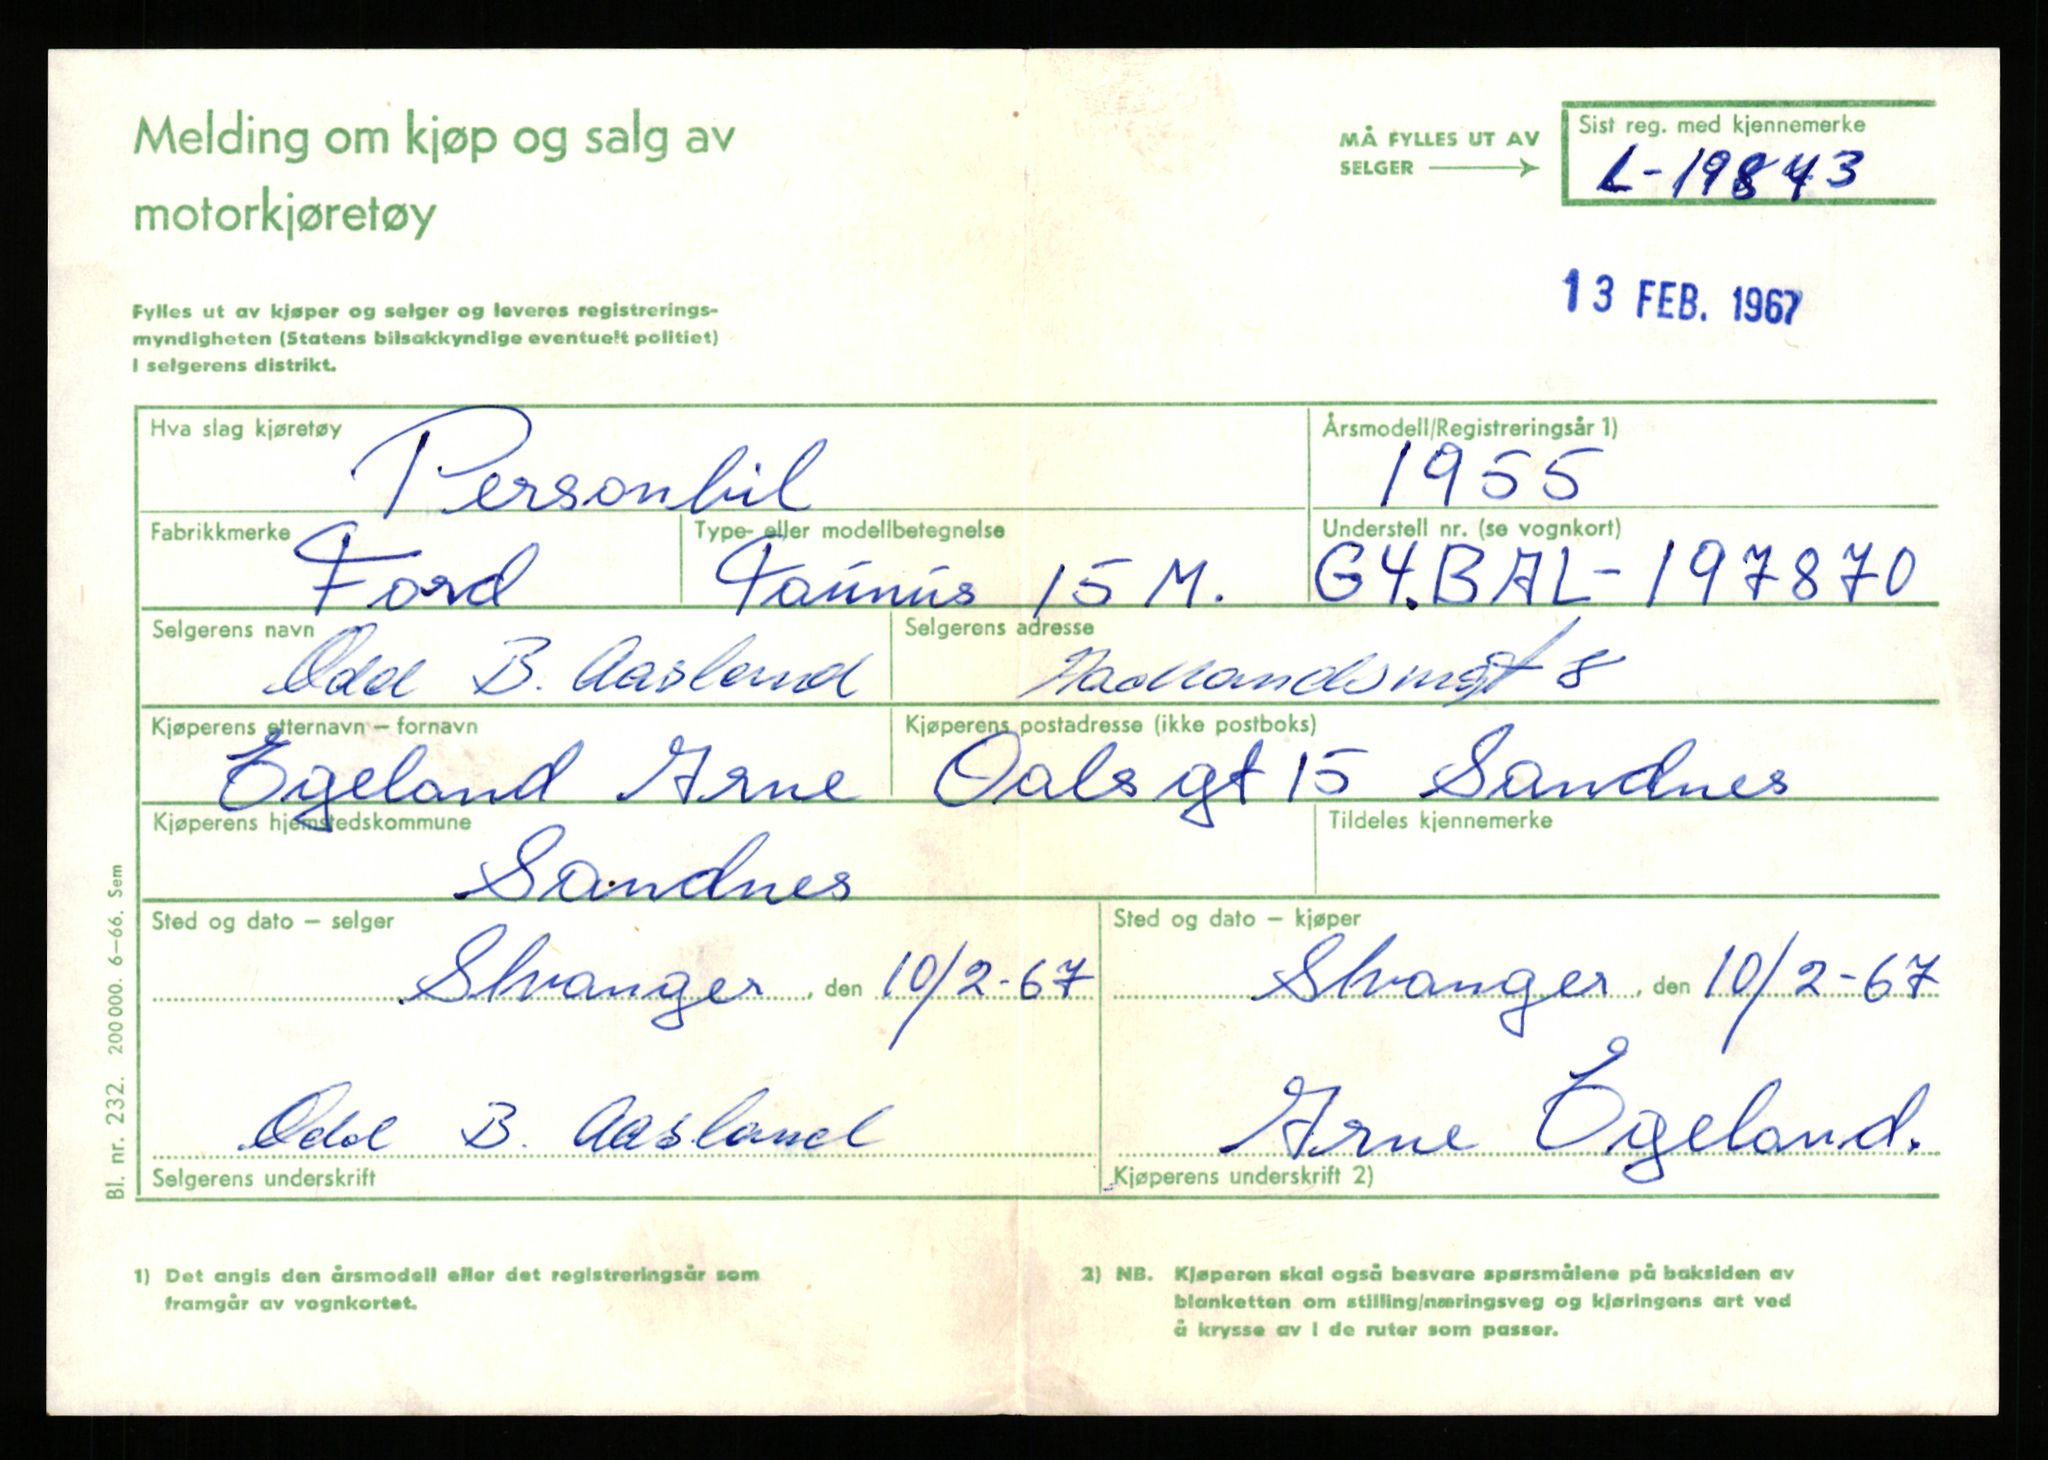 Melding om kjøp og salg av
motorkjøretøy
MÅ FYLLES UT AV
SELGER
Sist reg. med kjennemerke
L-19843
13 FEB. 1967
Fylles ut av kjøper og selger og leveres registrerings-
myndigheten (Statens bilsakkyndige eventuelt politiet)
i selgerens distrikt.
Hva slag kjøretøy
Personbil
Årsmodell/Registreringsår 1)
1955
Fabrikkmerke
Ford
Type- eller modellbetegnelse
Taunus 15 M.
Understell nr. (se vognkort)
G4.BAL-197870
Selgerens navn
Odd B. Aasland
Selgerens adresse
8
Kjøperens etternavn – fornavn
Egeland Arne
Kjøperens postadresse (ikke postboks)
Oalsgt 15 Sandnes
Kjøperens hjemstedskommune
Sandnes
Tildeles kjennemerke
Sted og dato – selger
Stvanger, den 10/2-67
Sted og dato – kjøper
Stvanger, den 10/2-67
Odd B. Aasland
Selgerens underskrift
Arne Egeland.
Kjøperens underskrift 2)
1) Det angis den årsmodell eller det registreringsår som
framgår av vognkortet.
2) NB. Kjøperen skal også besvare spørsmålene på baksiden av
blanketten om stilling/næringsveg og kjøringens art ved
å krysse av i de ruter som passer.
Bl. nr. 232. 200 000. 6–66. Sem